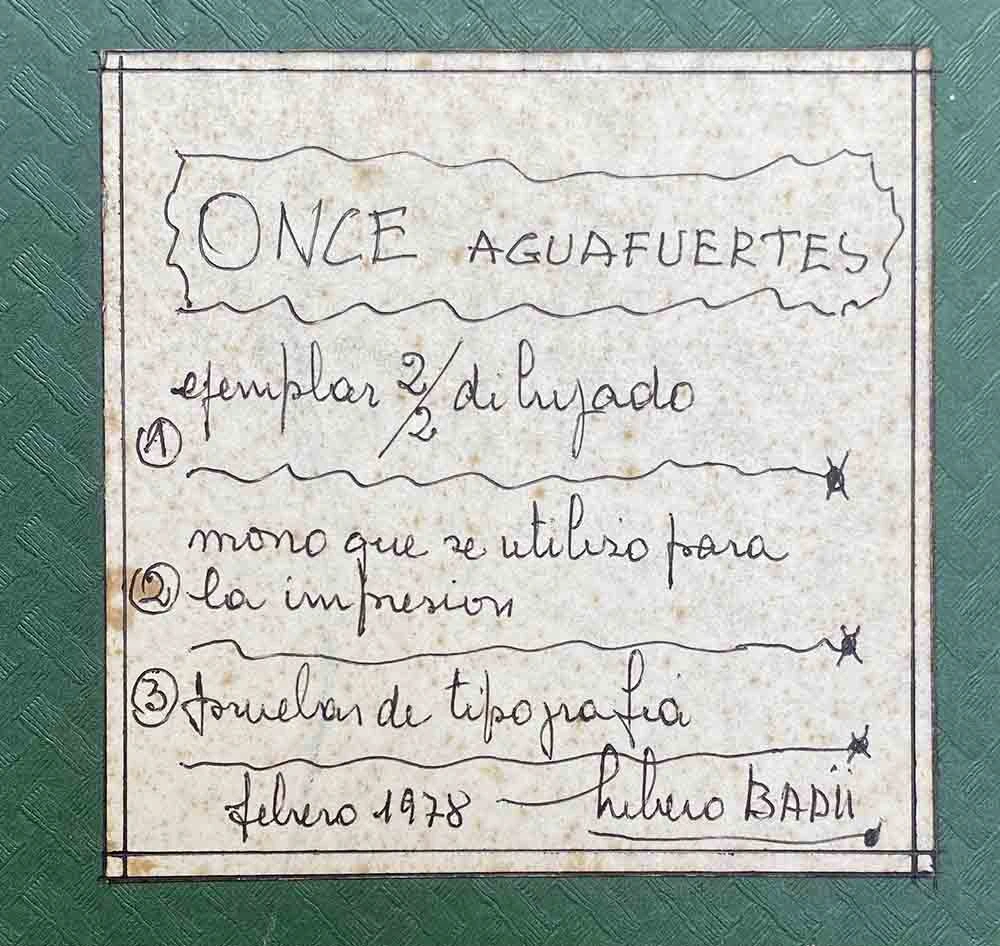 ONCE AGUAFUERTES
ejemplar 2/2 dibujado
①
mono que se utiliso para
② la impresion
③ pruebas de tipografia
febrero 1978 — Libero BADii